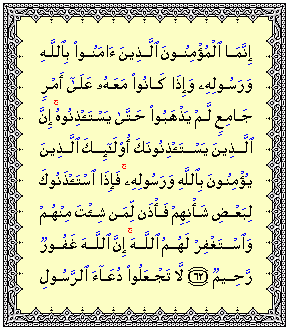 إِنَّمَا ٱلْمُؤْمِنُونَ ٱلَّذِينَ ءَامَنُوا۟ بِٱللَّهِ
وَرَسُولِهِۦ وَإِذَا كَانُوا۟ مَعَهُۥ عَلَىٰٓ أَمْرٍۢ
جَامِعٍۢ لَّمْ يَذْهَبُوا۟ حَتَّىٰ يَسْتَـْٔذِنُوهُ ۚ إِنَّ
ٱلَّذِينَ يَسْتَـْٔذِنُونَكَ أُو۟لَـٰٓئِكَ ٱلَّذِينَ
يُؤْمِنُونَ بِٱللَّهِ وَرَسُولِهِۦ ۚ فَإِذَا ٱسْتَـْٔذَنُوكَ
لِبَعْضِ شَأْنِهِمْ فَأْذَن لِّمَن شِئْتَ مِنْهُمْ
وَٱسْتَغْفِرْ لَهُمُ ٱللَّهَ ۚ إِنَّ ٱللَّهَ غَفُورٌۭ
رَّحِيمٌۭ ﴿٦٢﴾ لَّا تَجْعَلُوا۟ دُعَآءَ ٱلرَّسُولِ